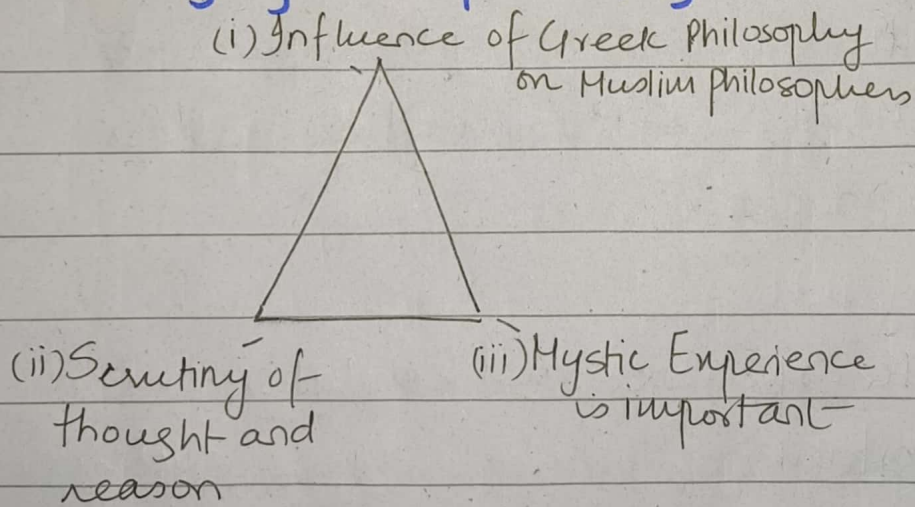 (i) Influence of Greek Philosophy
on Muslim Philosophers
(ii) Scrutiny of
thought and
reason
(iii) Mystic Experience
is important